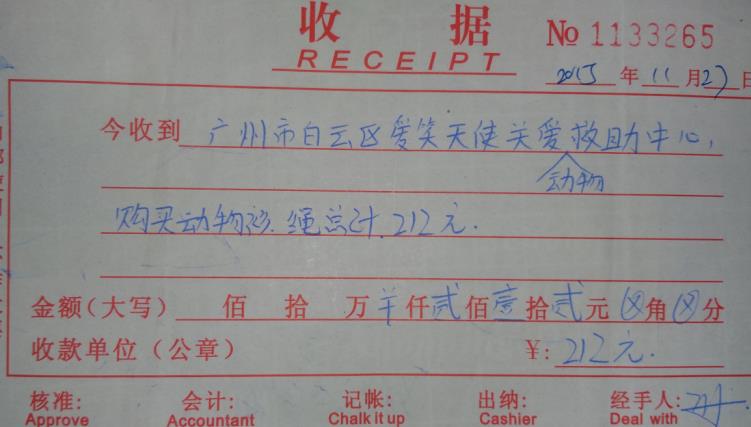 收据
RECEIPT
No 1133265
2015年11月27日
今收到 广州市白云区爱笑天使关爱救助中心,
动物
购买动物衫.绳总计.212元.
金额(大写) 佰 拾 万 羊仟贰佰壹拾贰元⊗角⊗分
收款单位(公章) ¥:212元.
核准: 会计: 记帐: 出纳: 经手人:
Approve Accountant Chalk it up Cashier Deal with